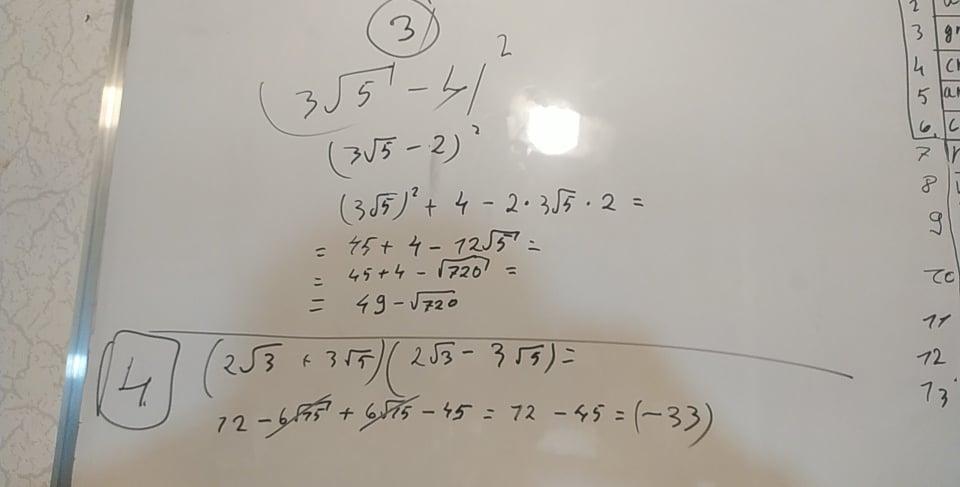 3
(3√5 - 4)²
(3√5 - 2)²
(3√5)² + 4 - 2 · 3√5 · 2 =
= 45 + 4 - 12√5 =
= 45 + 4 - √720 =
= 49 - √720
4
(2√3 + 3√5)(2√3 - 3√5) =
12 - 6√15 + 6√15 - 45 = 12 - 45 = (-33)
2
3
4
5
6.
7
8
9
10
11
12
13